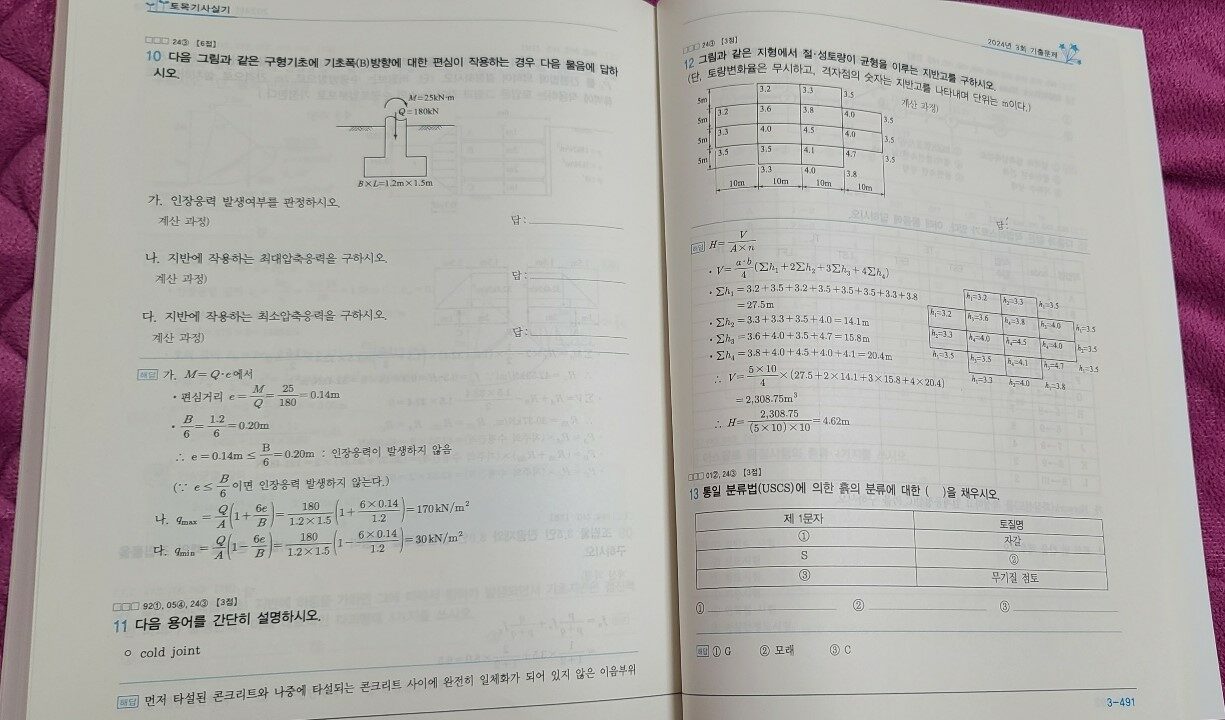 토목기사실기
□□□ 24③ 【6점】
10 다음 그림과 같은 구형기초에 기초폭(B)방향에 대한 편심이 작용하는 경우 다음 물음에 답하
시오.
M=25kN·m
Q=180kN
B×L=1.2m×1.5m
가. 인장응력 발생여부를 판정하시오.
계산 과정)
답:
나. 지반에 작용하는 최대압축응력을 구하시오.
계산 과정)
답:
다. 지반에 작용하는 최소압축응력을 구하시오.
계산 과정)
답:
해답 가. M=Q·e에서
·편심거리 e=M/Q=25/180=0.14m
·B/6=1.2/6=0.20m
∴ e=0.14m≤B/6=0.20m : 인장응력이 발생하지 않음
(∵ e≤B/6이면 인장응력 발생하지 않는다.)
나. qmax=Q/A(1+6e/B)=180/1.2×1.5(1+6×0.14/1.2)=170kN/m²
다. qmin=Q/A(1-6e/B)=180/1.2×1.5(1-6×0.14/1.2)=30kN/m²
□□□ 92①, 05④, 24③ 【3점】
11 다음 용어를 간단히 설명하시오.
○ cold joint
해답 먼저 타설된 콘크리트와 나중에 타설되는 콘크리트 사이에 완전히 일체화가 되어 있지 않은 이음부위
2024년 3회 기출문제
□□□ 24③ 【3점】
12 그림과 같은 지형에서 절·성토량이 균형을 이루는 지반고를 구하시오.
(단, 토량변화율은 무시하고, 격자점의 숫자는 지반고를 나타내며 단위는 m이다.)
계산 과정)
3.2 3.3 3.5
5m
3.2 3.6 3.8 4.0 3.5
5m
3.3 4.0 4.5 4.0 3.5
5m
3.5 3.5 4.1 4.7 3.5
5m
3.3 4.0 3.8
10m 10m 10m 10m
답:
해답 H=V/A×n
·V=a·b/4(∑h₁+2∑h₂+3∑h₃+4∑h₄)
·∑h₁=3.2+3.5+3.2+3.5+3.5+3.5+3.3+3.8
=27.5m
·∑h₂=3.3+3.3+3.5+4.0=14.1m
·∑h₃=3.6+4.0+3.5+4.7=15.8m
·∑h₄=3.8+4.0+4.5+4.0+4.1=20.4m
∴ V=5×10/4×(27.5+2×14.1+3×15.8+4×20.4)
=2,308.75m³
∴ H=2,308.75/(5×10)×10=4.62m
h₁=3.2 h₂=3.3 h₁=3.5
h₁=3.2 h₃=3.6 h₄=3.8 h₃=4.0 h₁=3.5
h₂=3.3 h₄=4.0 h₄=4.5 h₄=4.0 h₂=3.5
h₁=3.5 h₃=3.5 h₄=4.1 h₃=4.7 h₁=3.5
h₁=3.3 h₂=4.0 h₁=3.8
□□□ 01②, 24③ 【3점】
13 통일 분류법(USCS)에 의한 흙의 분류에 대한 ( )을 채우시오.
제 1문자 토질명
① 자갈
S ②
③ 무기질 점토
① ② ③
해답 ① G ② 모래 ③ C
3-491